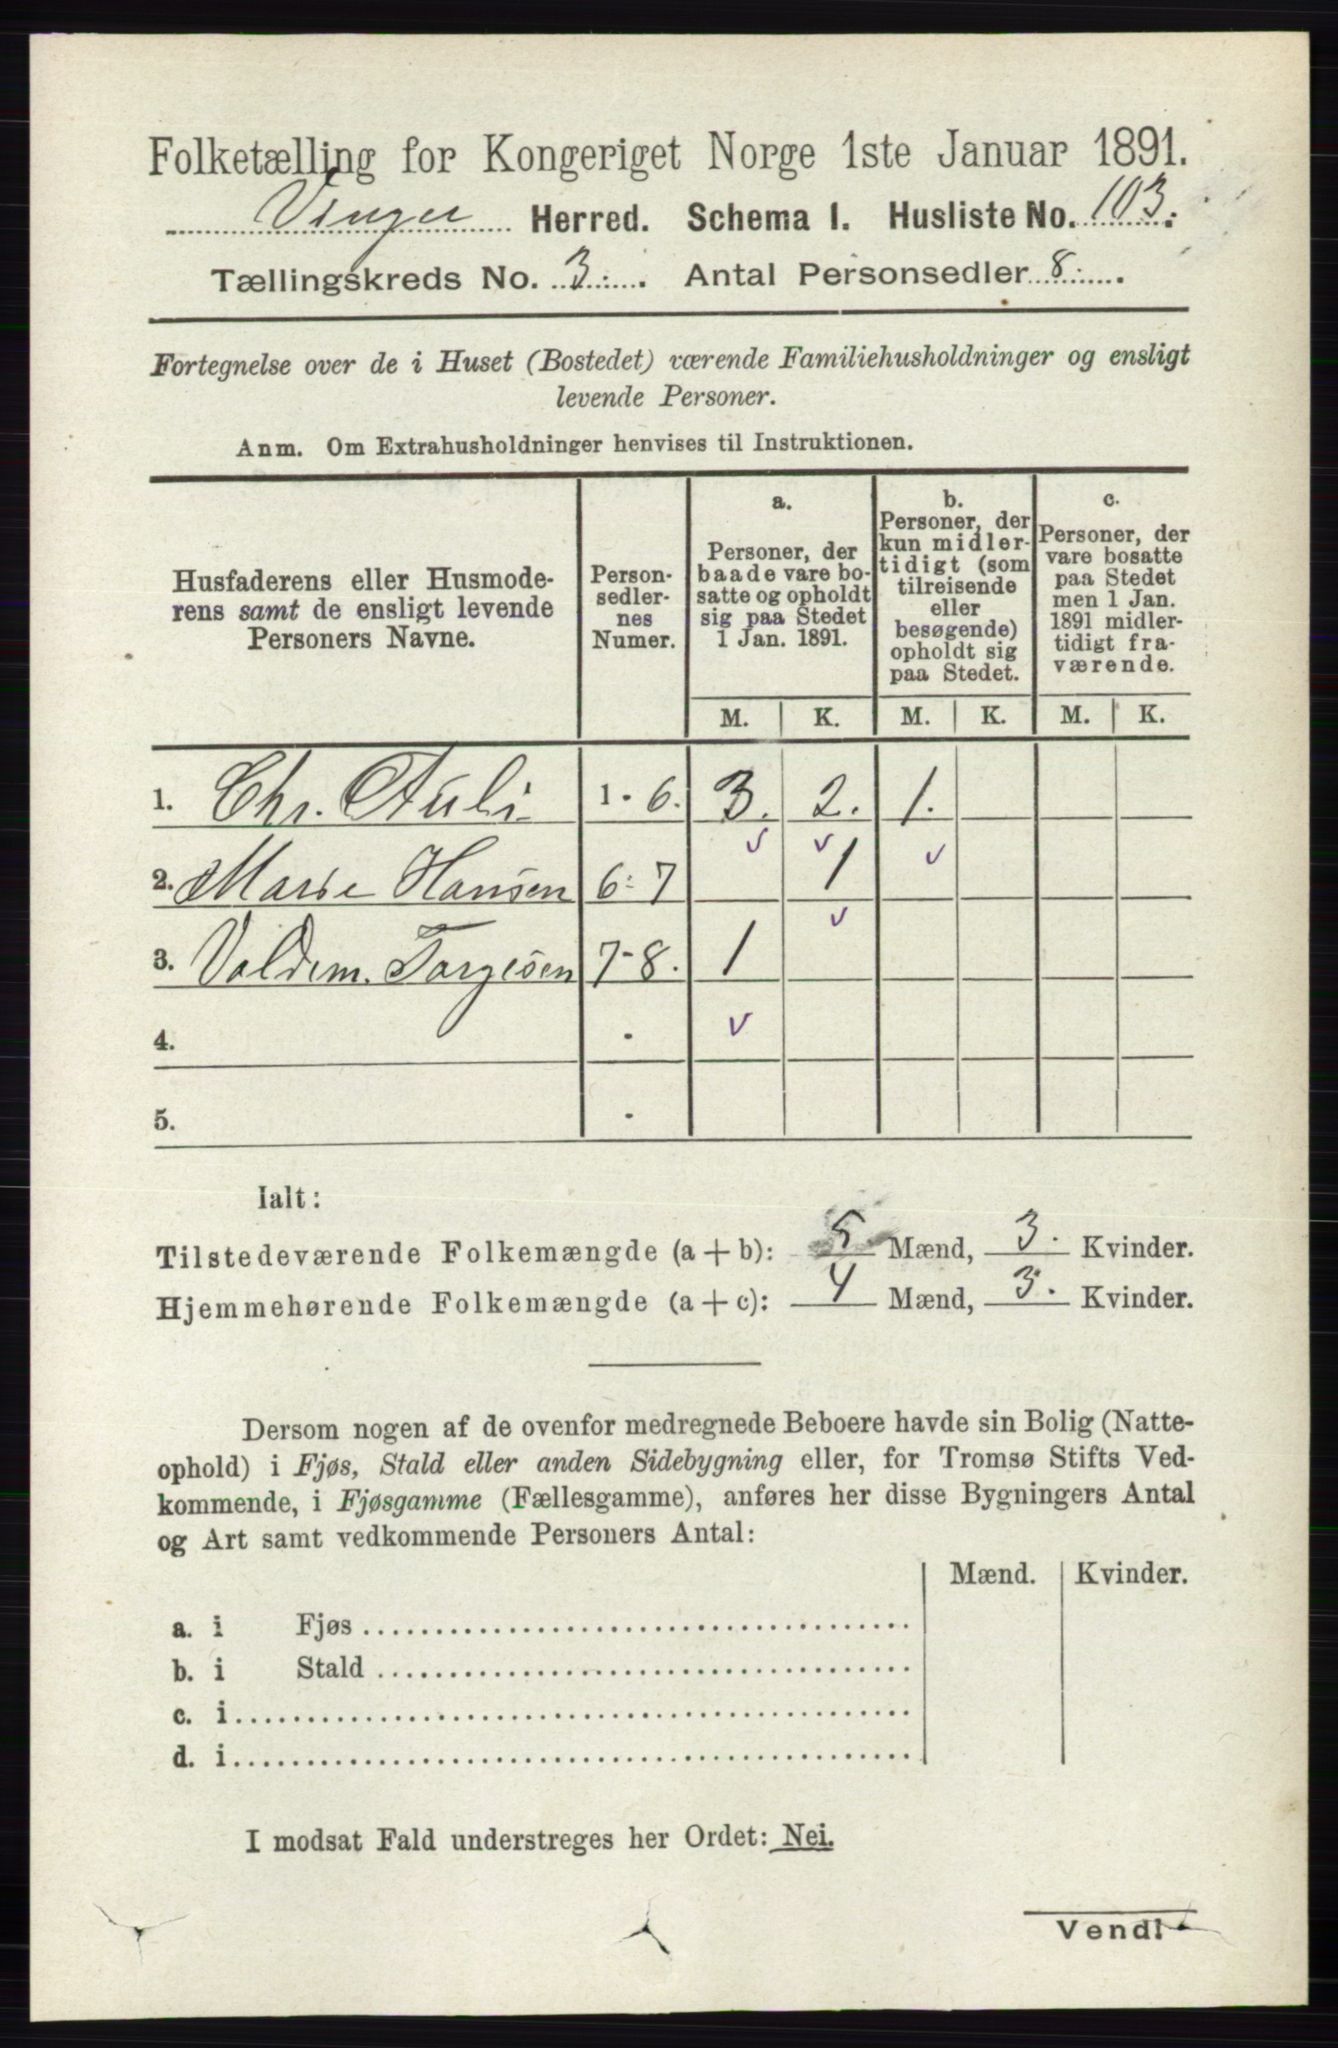 Folketælling for Kongeriget Norge 1ste Januar 1891.
Vinger Herred. Schema I. Husliste No. 103.
Tællingskreds No. 3. Antal Personsedler 8.
Fortegnelse over de i Huset (Bostedet) værende Familiehusholdninger og ensligt
levende Personer.
Anm. Om Extrahusholdninger henvises til Instruktionen.
Husfaderens eller Husmode-
rens samt de ensligt levende
Personers Navne.
Person-
sedler-
nes
Numer.
a.
Personer, der
baade vare bo-
satte og opholdt
sig paa Stedet
1 Jan. 1891.
b.
Personer, der
kun midler-
tidigt (som
tilreisende
eller
besøgende)
opholdt sig
paa Stedet.
c.
Personer, der
vare bosatte
paa Stedet
men 1 Jan.
1891 midler-
tidigt fra-
værende.
M. K. M. K. M. K.
1. Chr. Auli 1 - 6. 3. 2. 1.
v v v
2. Marie Hansen 6 - 7 1
v
3. Valdem. Torgesen 7 - 8. 1
v
4. -
5. -
Ialt:
Tilstedeværende Folkemængde (a + b): 5 Mænd, 3. Kvinder.
Hjemmehørende Folkemængde (a + c): 4 Mænd, 3. Kvinder.
Dersom nogen af de ovenfor medregnede Beboere havde sin Bolig (Natte-
ophold) i Fjøs, Stald eller anden Sidebygning eller, for Tromsø Stifts Ved-
kommende, i Fjøsgamme (Fællesgamme), anføres her disse Bygningers Antal
og Art samt vedkommende Personers Antal:
Mænd. Kvinder.
a. i Fjøs
b. i Stald
c. i
d. i
I modsat Fald understreges her Ordet: Nei.
Vend!